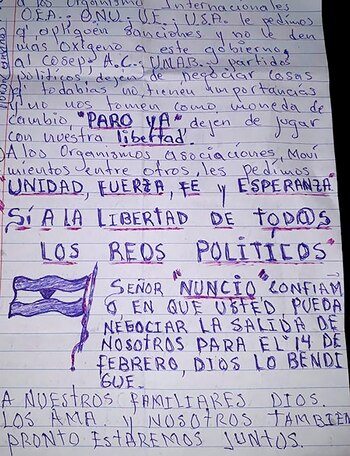 a los Organismos Internacionales
OEA., ONU, U.E., U.S.A. le pedimos
q' apliquen Sanciones y no le den
mas oxígeno a este gobierno,
al cosep, A.C., UNAB., y partidos
politicos dejen de negociar cosas
q' todabias no tienen importancias
y no nos tomen como moneda de
cambio "PARO YA" dejen de jugar
con nuestra libertad.
A los Organismos asociaciones, Movi
mientos entre otros, les pedimos
"UNIDAD, FUERZA, FE y ESPERANZA"
SÍ A LA LIBERTAD DE TOD@S
LOS REOS POLÍTICOS"
SEÑOR "NUNCIO" CONFIAM
O, EN QUE USTED, PUEDA
NEGOCIAR LA SALIDA DE
NOSOTROS PARA EL "14 DE
FEBRERO, DIOS LO BENDI
GUE.
A NUESTROS FAMILIARES DIOS.
LOS AMA. Y NOSOTROS TAMBIEN
PRONTO ESTAREMOS JUNTOS.